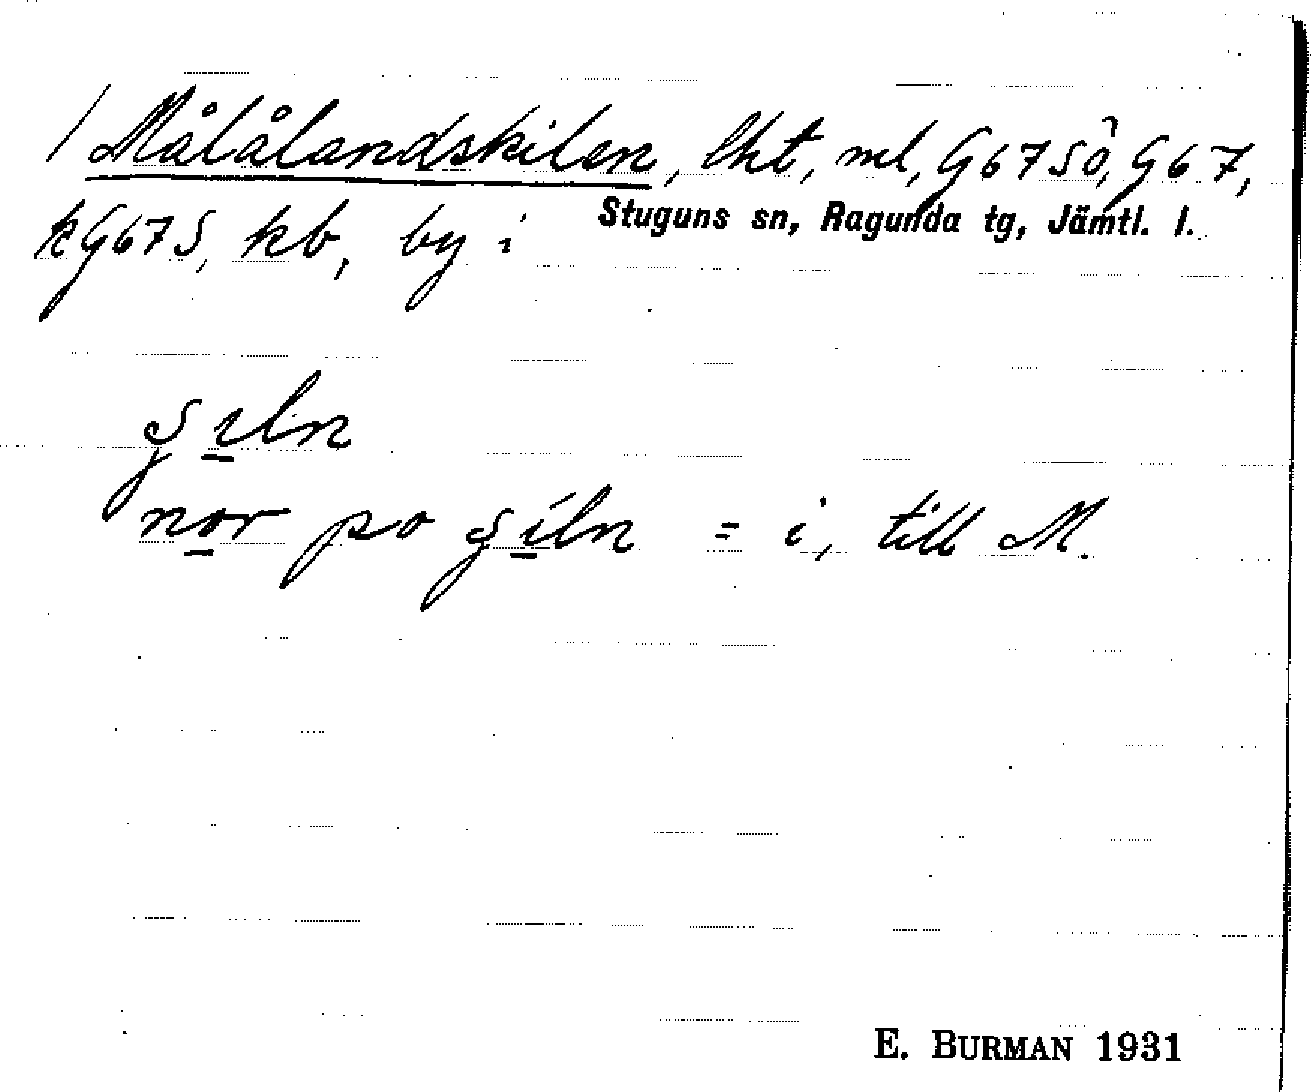 / Målålandskilen, lht, ml, G67SÖ, G67,
kG67S, kb, by i Stuguns sn, Ragunda tg, Jämtl. l.
ʂıln
nor po ʂıln = i, till M.
E. BURMAN 1931